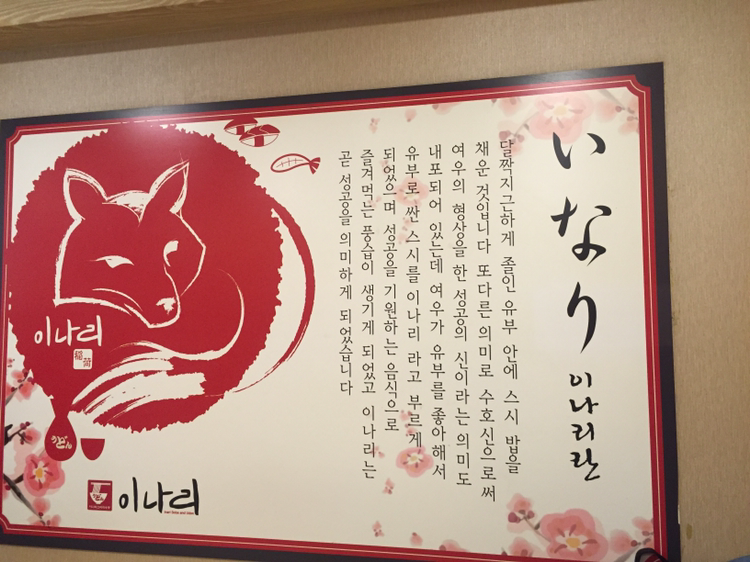 いなり 이나리란
달짝지근하게 졸인 유부 안에 스시 밥을
채운 것입니다 또다른 의미로 수호신으로써
여우의 형상을 한 성공의 신이라는 의미도
내포되어 있는데 여우가 유부를 좋아해서
유부로 싼 스시를 이나리 라고 부르게
되었으며 성공을 기원하는 음식으로
즐겨먹는 풍습이 생기게 되었고 이나리는
곧 성공을 의미하게 되었습니다
이나리
稲荷
うどん
이나리